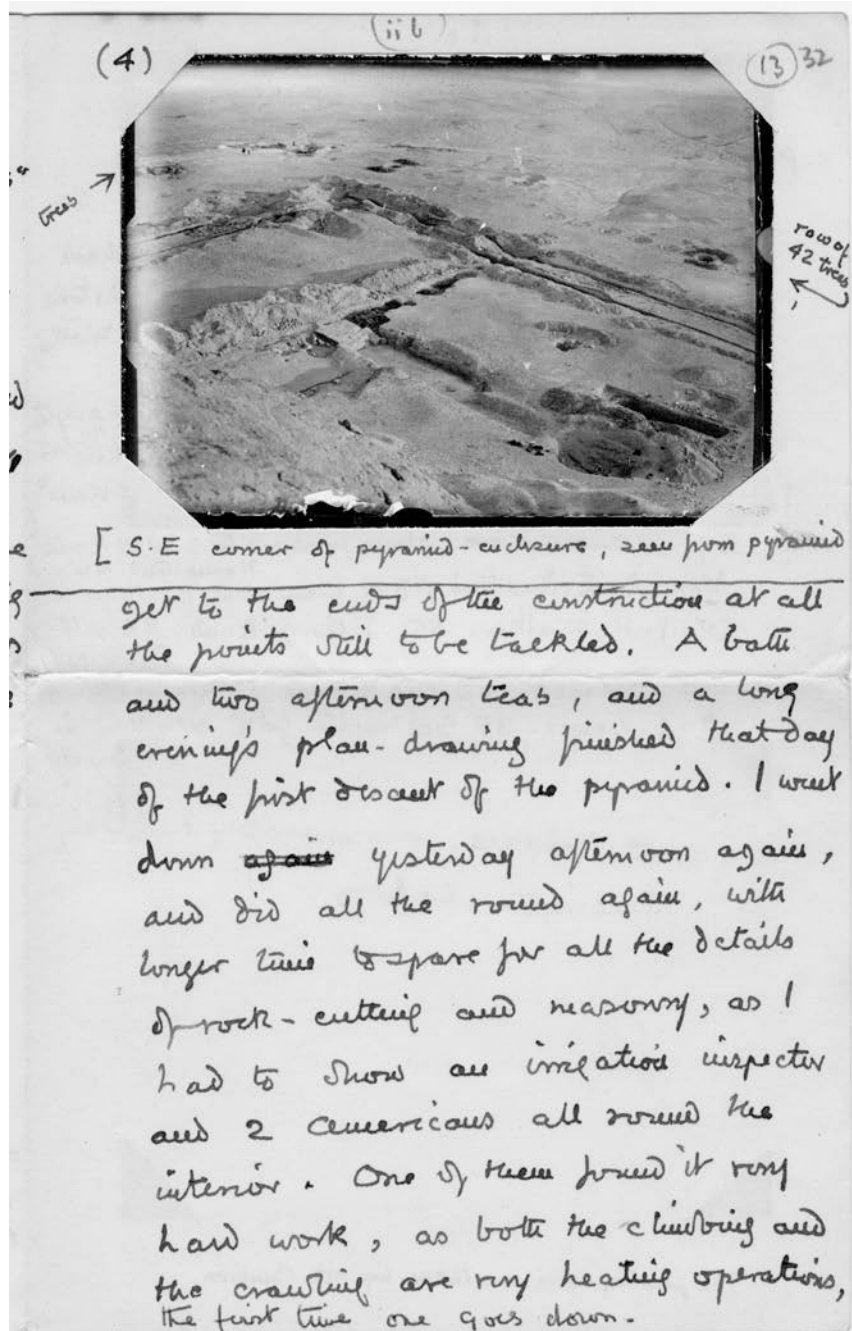 (iib)
(4)
(13) 32
trees
row of
42 trees
[ S.E corner of pyramid-enclosure, seen from pyramid
get to the ends of the construction at all
the points still to be tackled. A bath
and two afternoon teas, and a long
evening's plan-drawing finished that day
of the first descent of the pyramid. I went
down again yesterday afternoon again,
and did all the round again, with
longer time to spare for all the details
of rock-cutting and masonry, as I
had to show an irrigation inspector
and 2 Americans all round the
interior. One of them found it very
hard work, as both the climbing and
the crawling are very heating operations,
the first time one goes down.